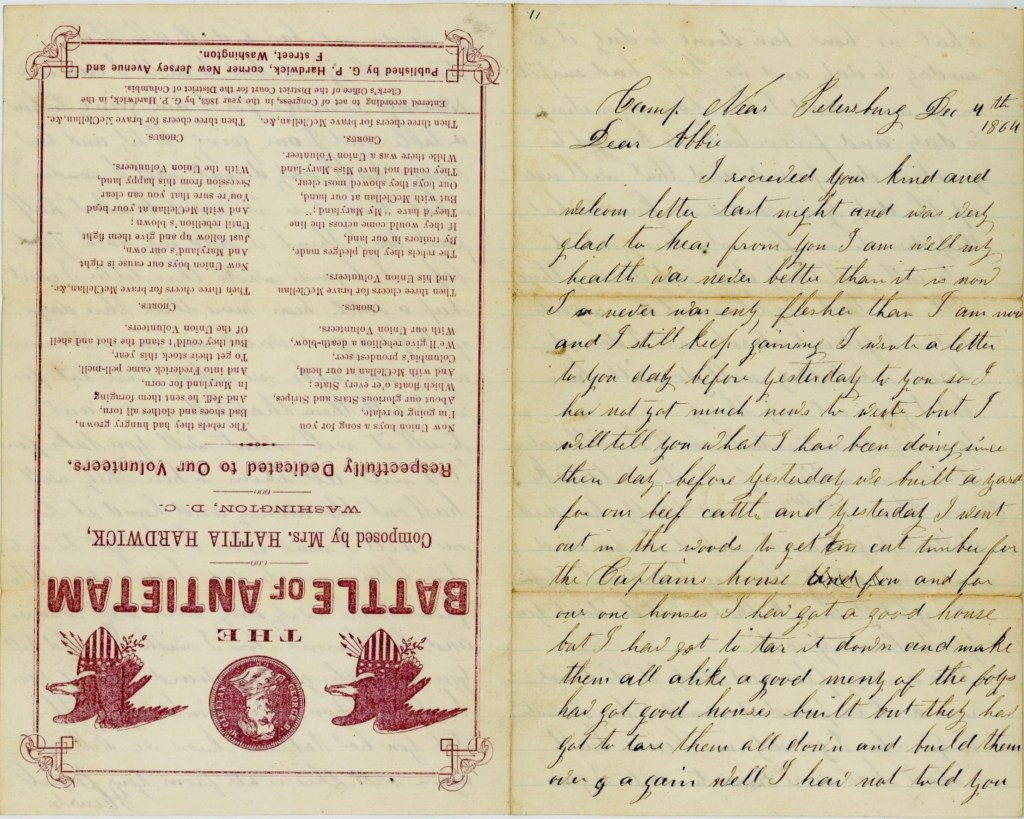 GEORGE
THE
BATTLE OF ANTIETAM
Composed by Mrs. HATTIA HARDWICK,
WASHINGTON, D. C.
Respectfully Dedicated to Our Volunteers.
Now Union boys a song for you
I'm going to relate,
About our glorious Stars and Stripes,
Which floats o'er every State;
And with McClellan at our head,
Columbia's proudest seer,
We'll give rebellion a death-blow,
With our Union Volunteers.
CHORUS.
Then three cheers for brave McClellan
And his Union Volunteers.
The rebels, they had pledges made,
By traitors in our land,
If they would come across the line
They'd have "My Maryland:"
But with McClellan at our hand,
Our boys they showed most clear,
They could not have Miss Mary-land
While there was a Union Volunteer.
CHORUS.
Then three cheers for brave McClellan, &c.
The rebels they had hungry grown,
Bad shoes and clothes all torn,
And Jeff. he sent them foraging
In Maryland for corn,
And into Frederick came pell-mell,
To get their stock this year,
But they could't stand the shot and shell
Of the Union Volunteers.
CHORUS.
Then three cheers for brave McClellan, &c.
Now Union boys our cause is right
And Maryland's our own,
Just follow up and give them fight
Until rebellion's blown;
And with McClellan at your head
You're sure that you can clear
Secession from this happy land,
With the Union Volunteers.
CHORUS.
Then three cheers for brave McClellan, &c.
Entered according to act of Congress, in the year 1863, by G. P. Hardwick, in the
Clerk's Office of the District Court for the District of Columbia.
Published by G. P. Hardwick, corner New Jersey Avenue and
F street, Washington.
Camp Near Petersburg Dec 4th
1864
Dear Abbie
I recieved your kind and
welcom letter last night and was very
glad to hear from you I am well my
health was never bette than it is now
I never was eny flesher than I am now
and I still keep gaining I wrote a letter
to you day before yesterday to you so I
hav not got much news to write but I
will tell you what I hav been doing since
then day before yesterday we built a yard
for our beef cattle and yesterday I went
out in the woods to get cut timber for
the Captains house and for and for
our one houses I hav got a good house
but I hav got to tar it down and make
them all alike a good meny of the boys
hav got good houses built but they hav
got to tare them all down and build them
over a gain well I hav not told you